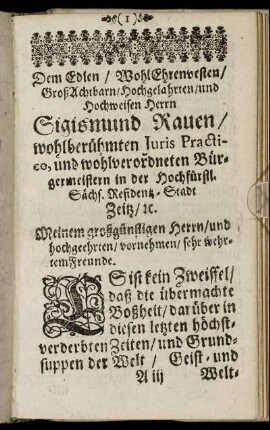 (1)
Dem Edlen / WohlEhrenvesten /
GroßAchtbarn / Hochgelahrten / und
Hochweisen Herrn
Sigismund Rauen /
wohlberühmten Iuris Practi-
co, und wohlverordneten Bür-
germeistern in der Hochfürstl.
Sächs. Residentz-Stadt
Zeitz / ꝛc.
Meinem großgünstigen Herrn / und
hochgeehrten / vornehmen / sehr wehr-
tem Freunde.
ES ist kein Zweiffel /
daß die übermachte
Boßheit / darüber in
diesen letzten höchst-
verderbten Zeiten / und Grund-
suppen der Welt / Geist- und
A iij Welt-